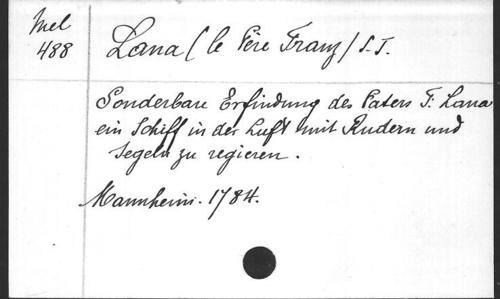 Mel
488
Lana (le Père Franz) S.J.
Sonderbare Erfindung des Paters F. Lana
ein Schiff in der Luft mit Rudern und
Segeln zu regieren.
Mannheim. 1784.